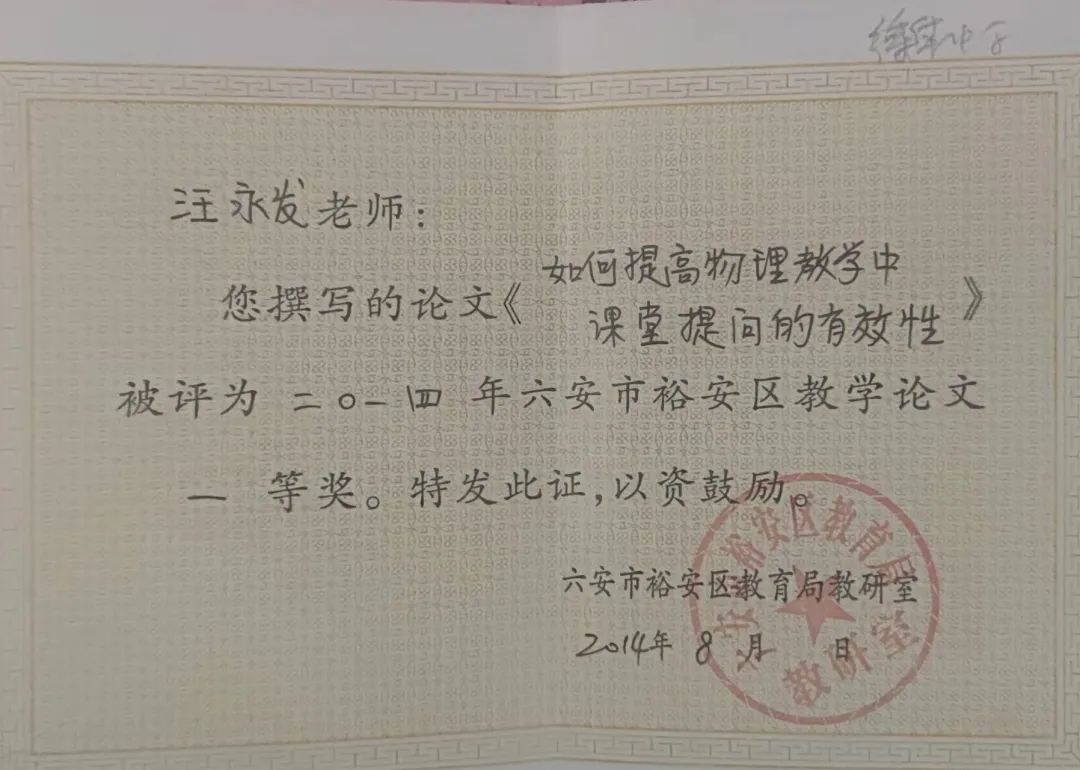 汪永发老师：
您撰写的论文《如何提高物理教学中
课堂提问的有效性》
被评为 二〇一四 年六安市裕安区教学论文
一 等奖。特发此证，以资鼓励。
六安市裕安区教育局教研室
2014年 8 月 日
六安市裕安区教育局
教研室